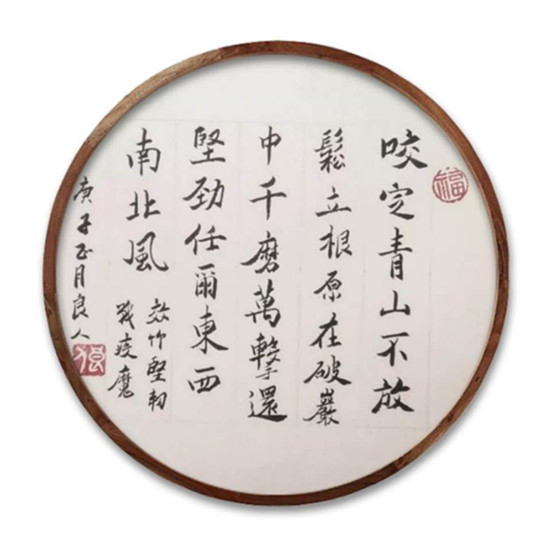 福
咬定青山不放
鬆立根原在破巖
中千磨萬擊還
堅勁任爾東西
南北風
效竹堅韌
戰疫魔
庚子正月良人